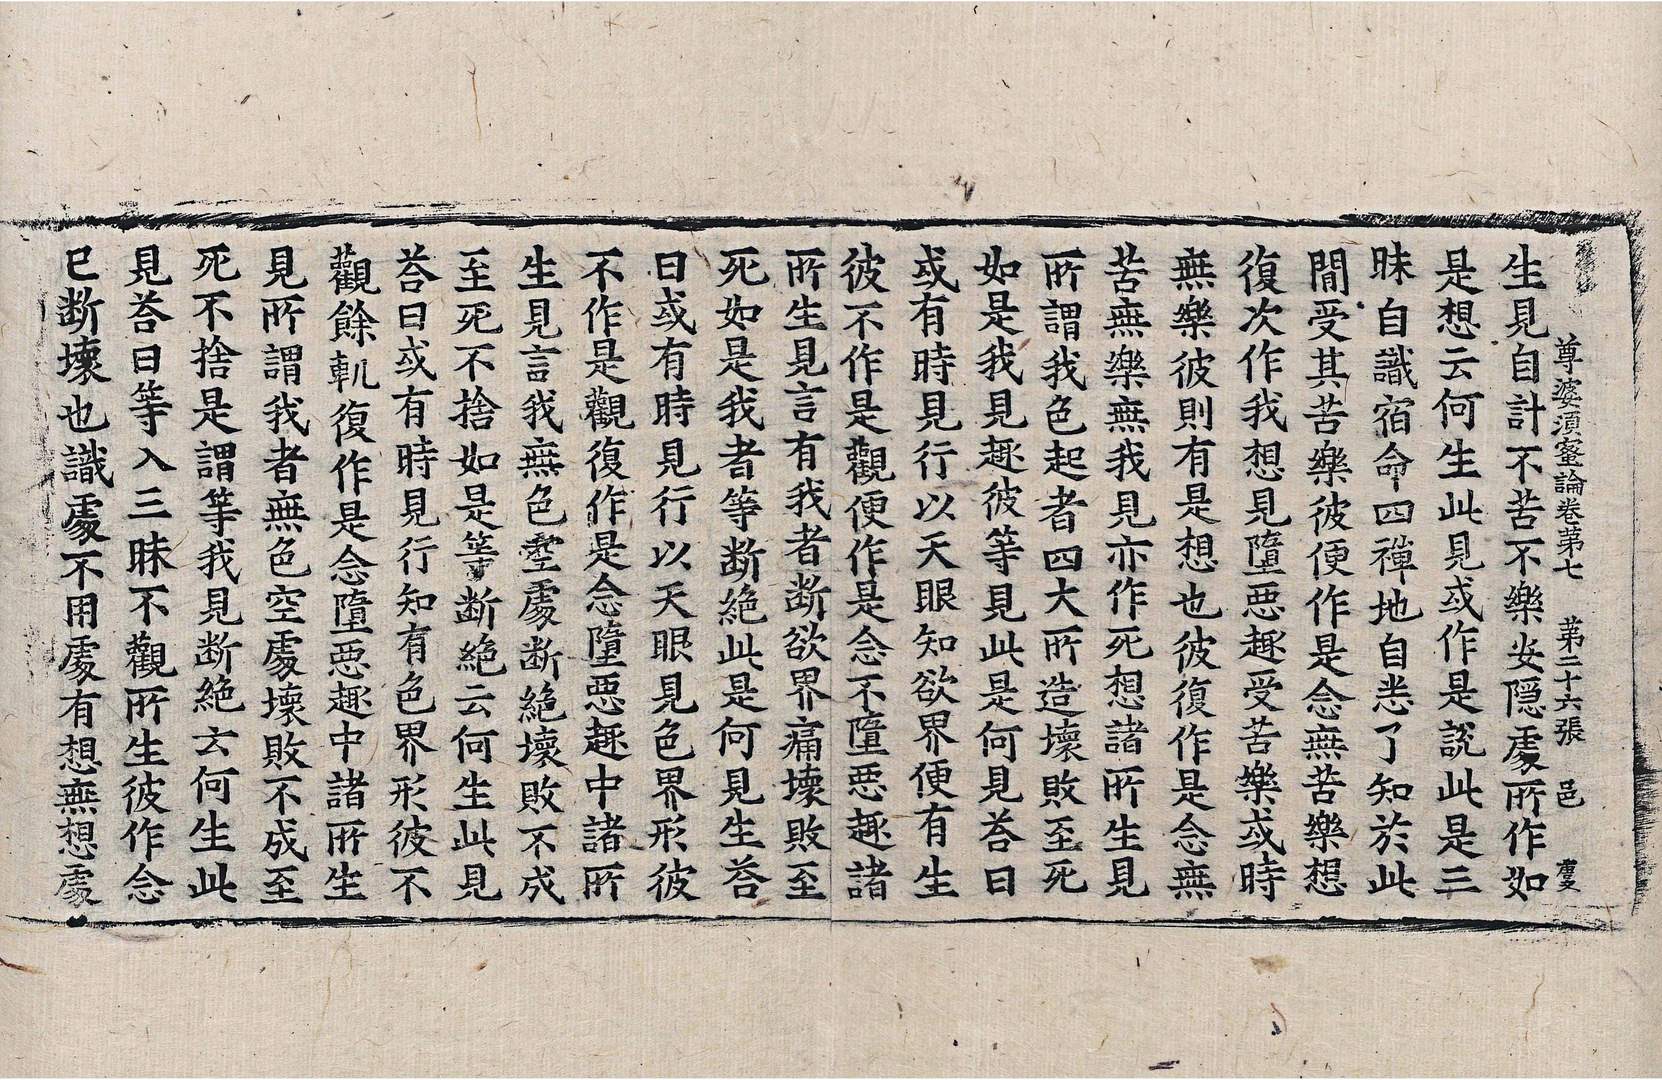 尊婆須蜜論卷第七　第二十六張　邑　慶
生見自計不苦不樂安隱處所作如
是想云何生此見或作是說此是三
昧自識宿命四禪地自恙了知於此
間受其苦樂彼便作是念無苦樂想
復次作我想見墮惡趣受苦樂或時
無樂彼則有是想也彼復作是念無
苦無樂無我見亦作死想諸所生見
所謂我色起者四大所造壞敗至死
如是我見趣彼等見此是何見荅曰
或有時見行以天眼知欲界便有生
彼不作是觀便作是念不墮惡趣諸
所生見言有我者斷欲界痛壞敗至
死如是我者等斷絕此是何見生荅
曰或有時見行以天眼見色界形彼
不作是觀復作是念墮惡趣中諸所
生見言我無色空處斷絕壞敗不成
至死不捨如是等斷絕云何生此見
荅曰或有時見行知有色界形彼不
觀餘軌復作是念墮惡趣中諸所生
見所謂我者無色空處壞敗不成至
死不捨是謂等我見斷絕云何生此
見荅曰等入三昧不觀所生彼作念
已斷壞也識處不用處有想無想處